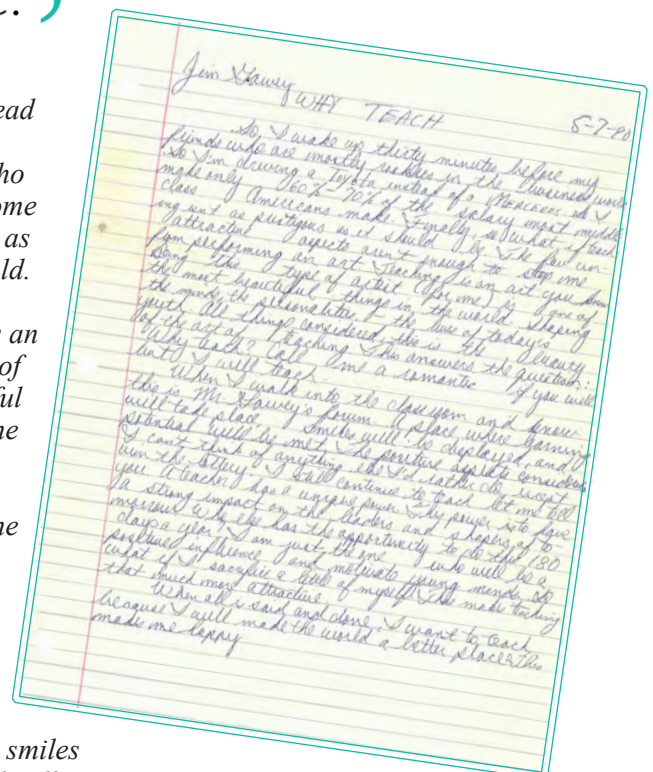 e.”
ead
ho
ome
as
ld.
an
of
ful
he
he
smiles
Jim Gawey
WHY TEACH
5-7-90
So, I wake up thirty minutes before my
friends who are mostly rookies in the business world
So I'm driving a Toyota instead of a Mercedes. So I
make only 60%-70% of the salary most middle
class Americans make. Finally, so what if teach-
ing isn't as prestigous as it should be. The few un-
attractive aspects aren't enough to stop me
from performing an art. Teaching is an art, you know
Being this type of artist (for me) is one of
the most beautiful things in the world. Shaping
the minds, the personalities, & the lives of today's
youth. All things considered, this is the beauty
of the art of teaching. This answers the question:
Why teach? Call me a romantic if you will
but I will teach.
When I walk into the classroom and know
this is Mr. Gawey's forum. A place where learning
will take place. Smiles will be displayed, and
potential will be met. The positive aspects considered
I can't think of anything else I'd rather do except
win the lottery. I'd still continue to teach. Let me tell
you. A teacher has a unique power. This power is to have
a strong impact on the leaders and shapers of to-
morrow. Who else has the opportunity to do this 180
days a year? I am just the one who will be a
positive influence and motivate young minds. So
what if I sacrifice a little of myself. This makes teaching
that much more attractive.
When all is said and done I want to teach
because I will make the world a better place. This
makes me happy